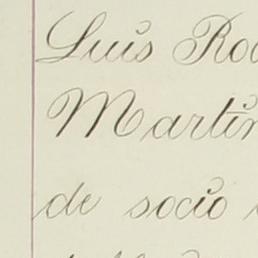 Luis
Martin
de socio